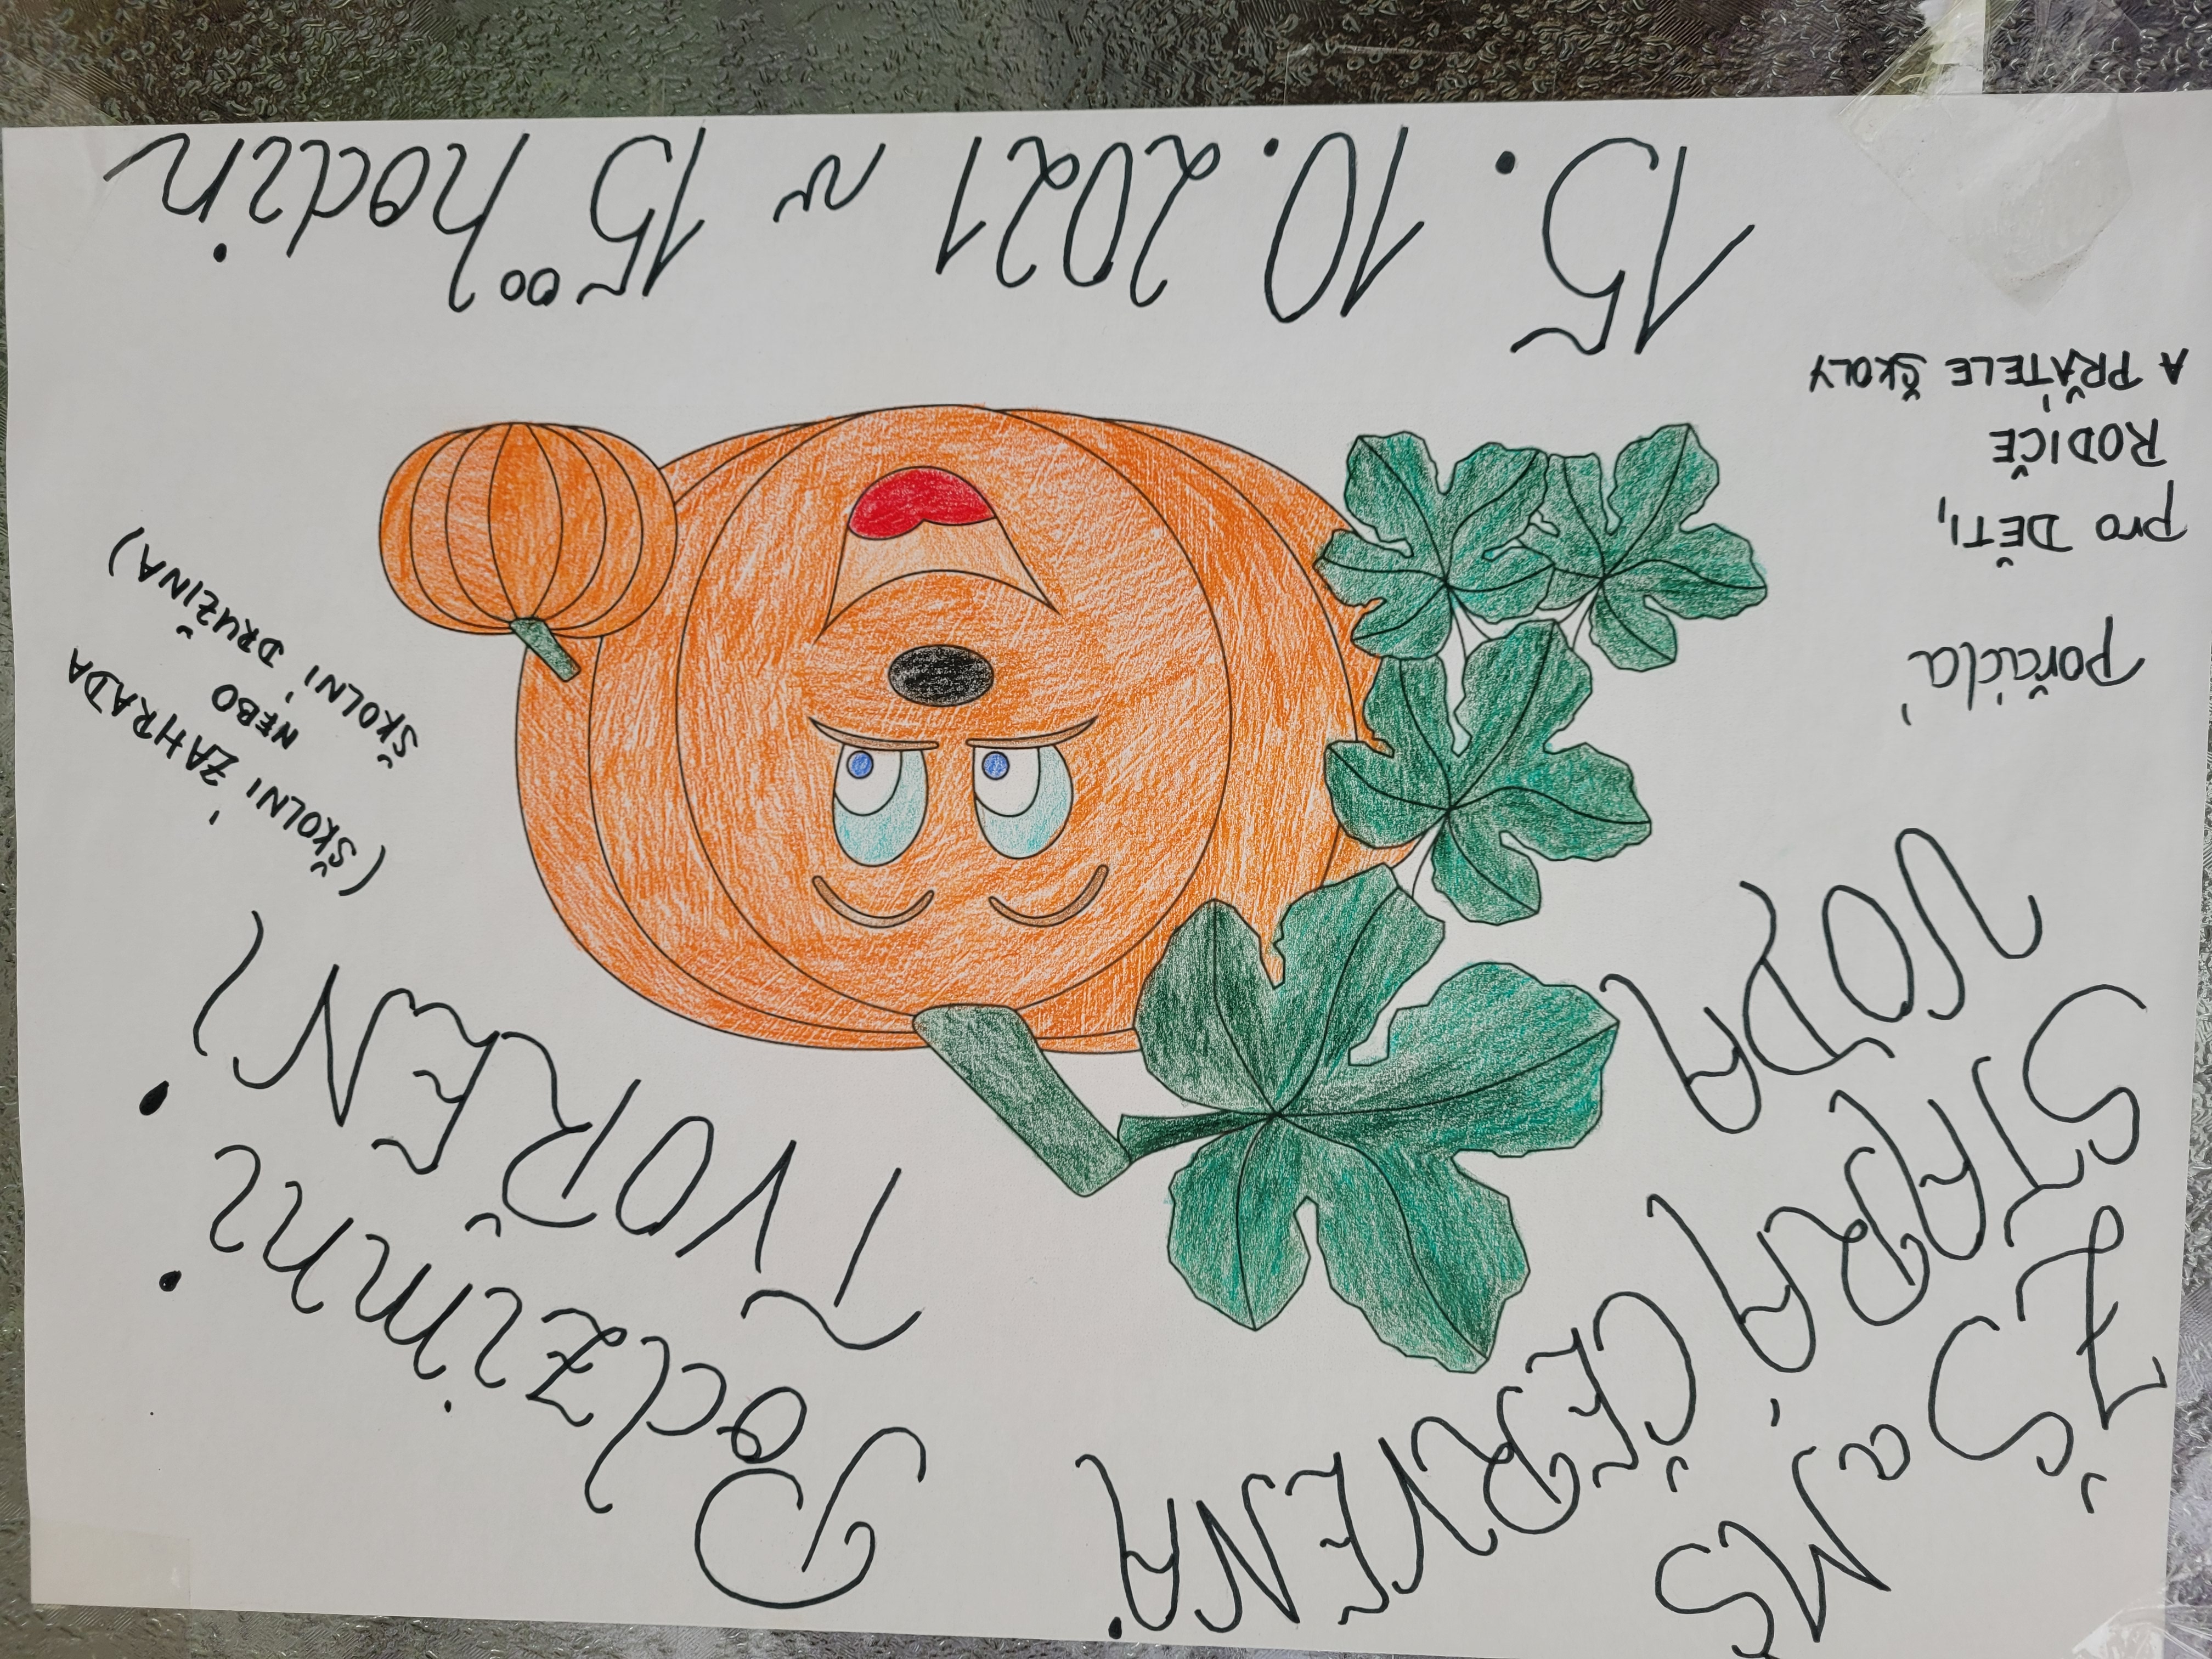 ZŠ a MŠ
STARÁ ČERVENÁ
VODA
pořádá
pro DĚTI,
RODIČE
A PŘÁTELE ŠKOLY
Podzimní
TVOŘENÍ
(ŠKOLNÍ ZAHRADA
NEBO
ŠKOLNÍ DRUŽINA)
15. 10. 2021 v 15⁰⁰ hodin